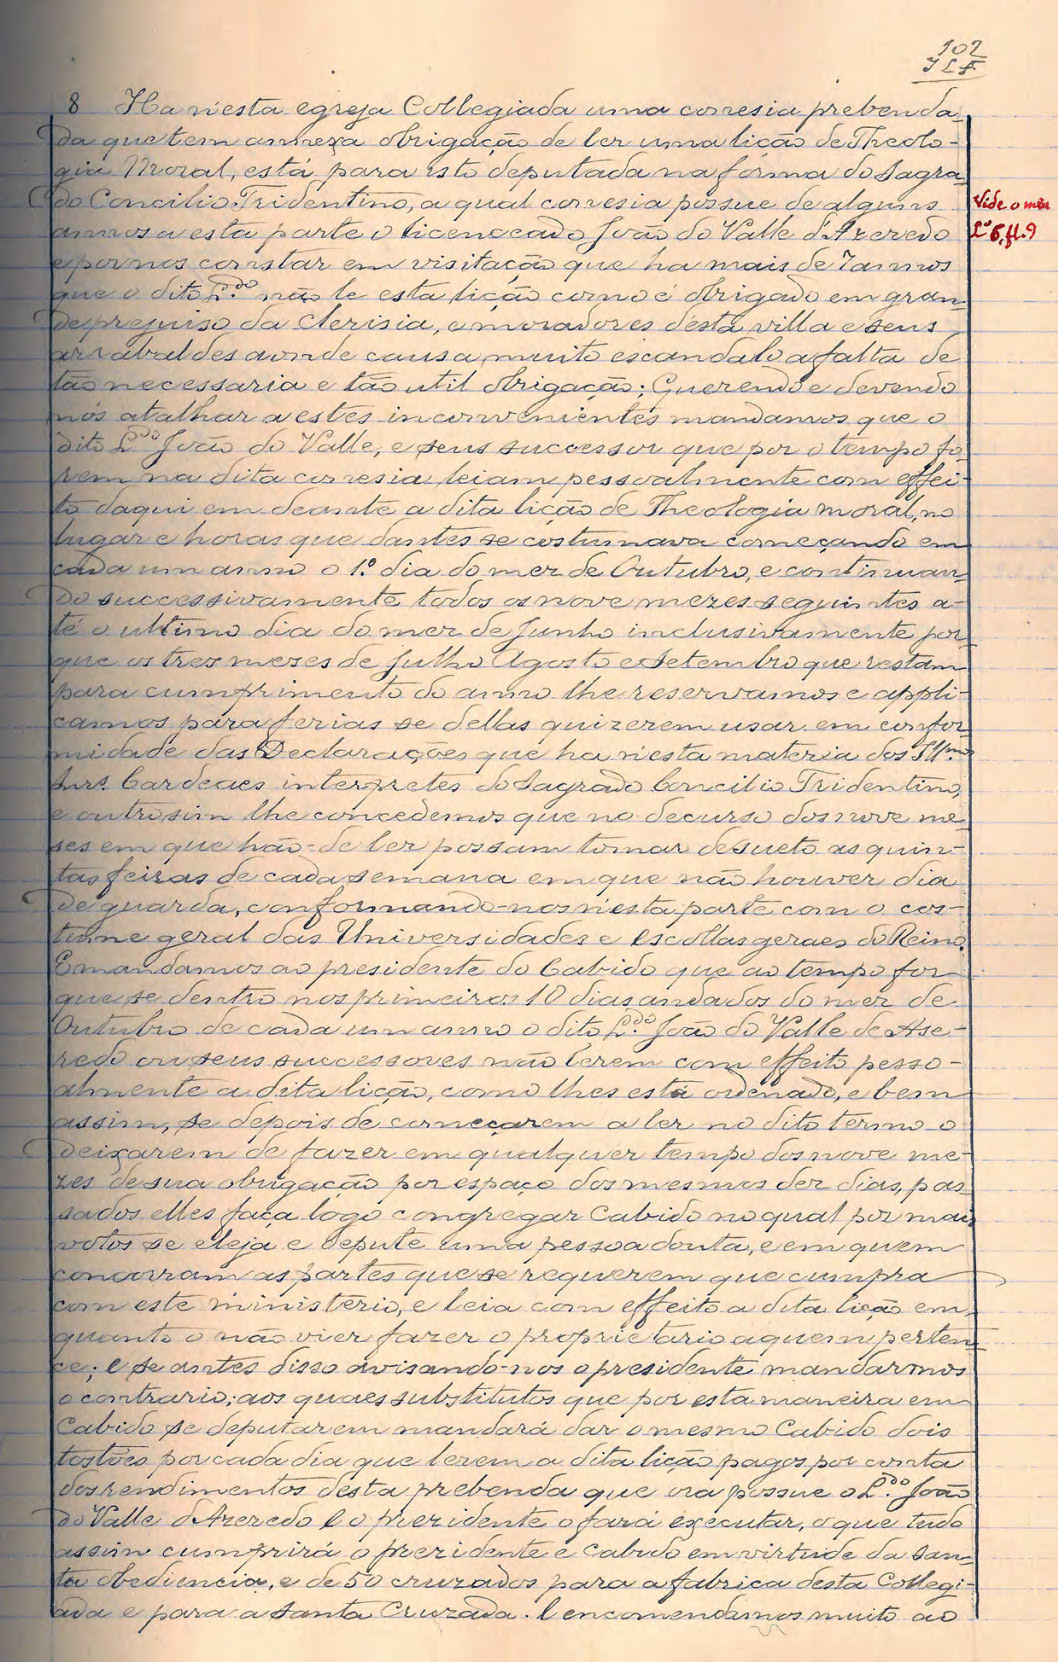 102
JLF
8 Ha n'esta egreja Collegiada uma conesia prebenda
da que tem annexa obrigação de ler uma lição de Theolo-
gia Moral, está para isto deputada na fórma do Sagra-
do Concilio Tridentino, a qual conesia possue de alguns
annos a esta parte o licenceado João do Valle d'Azeredo
e por nos constar em visitação que ha mais de 7 annos
que o dito L.do não le esta lição como é obrigado em gran-
de prejuiso da clerisia, e moradores desta villa e seus
arrabaldes aonde causa muito escandalo a falta de
tão necessaria e tão util obrigação; Querendo e devendo
nós atalhar a estes inconvenientes mandamos que o
dito L.do João do Valle, e seus successor que por o tempo fo-
rem na dita conesia leiam pessoalmente com effei-
to daqui em deante a dita lição de Theologia moral, no
lugar e horas que dantes se costumava começando em
cada um anno o 1.º dia do mez de Outubro, e continuan-
do successivamente todos os nove mezes seguintes a-
té o ultimo dia do mez de Junho inclusivamente por
que os tres mezes de Julho Agosto e Setembro que restam
para cumprimento do anno lhe reservamos e appli-
camos para ferias se dellas quizerem usar em confor
midade das Declarações que ha n'esta materia dos Ill.mos
Snrs. Cardeaes interpretes do Sagrado Concilio Tridentino,
e outrosim lhe concedemos que no decurso dos nove me-
ses em que hão-de ler possam tomar desueto as quin-
tas feiras de cada semana em que não houver dia
de guarda, conformando-nos n'esta parte com o cos-
tume geral das Universidades e escollas geraes do Reino.
E mandamos ao presidente do Cabido que ao tempo for
que se dentro nos primeiros 10 dias andados do mez de
Outubro de cada um anno o dito L.do João do Valle de Aze-
redo ou seus successores não lerem com effeito pesso-
almente a dita lição, como lhes está ordenado, e bem
assim, se depois de começarem a ler no dito termo o
deixarem de fazer em qualquer tempo dos nove me-
zes de sua obrigação por espaço dos mesmos dez dias, pas
sados elles faça logo congregar Cabido no qual por mais
votos se eleja e depute uma pessoa douta, e em quem
concorram as partes que se requerem que cumpra
com este ministério, e leia com effeito a dita lição em
quanto o não vier fazer o proprietario a quem perten-
ce; e se antes disso avisando-nos o presidente mandarmos
o contrario; aos quaes substitutos que por esta maneira em
Cabido se deputarem mandará dar o mesmo Cabido dois
tostões por cada dia que lerem a dita lição pagos por conta
dos rendimentos desta prebenda que ora possue o L.do João
do Valle d'Azeredo e o prezidente o fará executar, o que tudo
assim cumprirá o prezidente e Cabido em virtude da san-
ta obediencia, e de 50 cruzados para a fabrica desta Collegi-
ada e para a Santa Cruzada. E encomendamos muito ao
Vide o meu
L.º 6, fl. 9